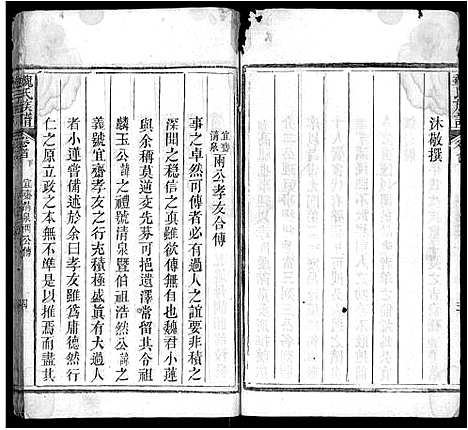 沐敬撰
宜齋清泉兩公孝友合傳
事之卓然可傳者必有過人之誼要非積之
閎而之穩信之真雖欲傳無自也魏君小蓮
與余稱莫逆交先芬可挹遺澤常留其令祖
麟玉公諱之禮號清泉暨伯祖浩然公諱之
義號宜齋孝友之行充積極盛眞有大過人
者小蓮嘗備述於余曰孝友雖為庸德然行
仁之原立政之本無不準是以推焉而盡其
魏氏族譜
卷首
下
宜齋清泉兩公傳
四